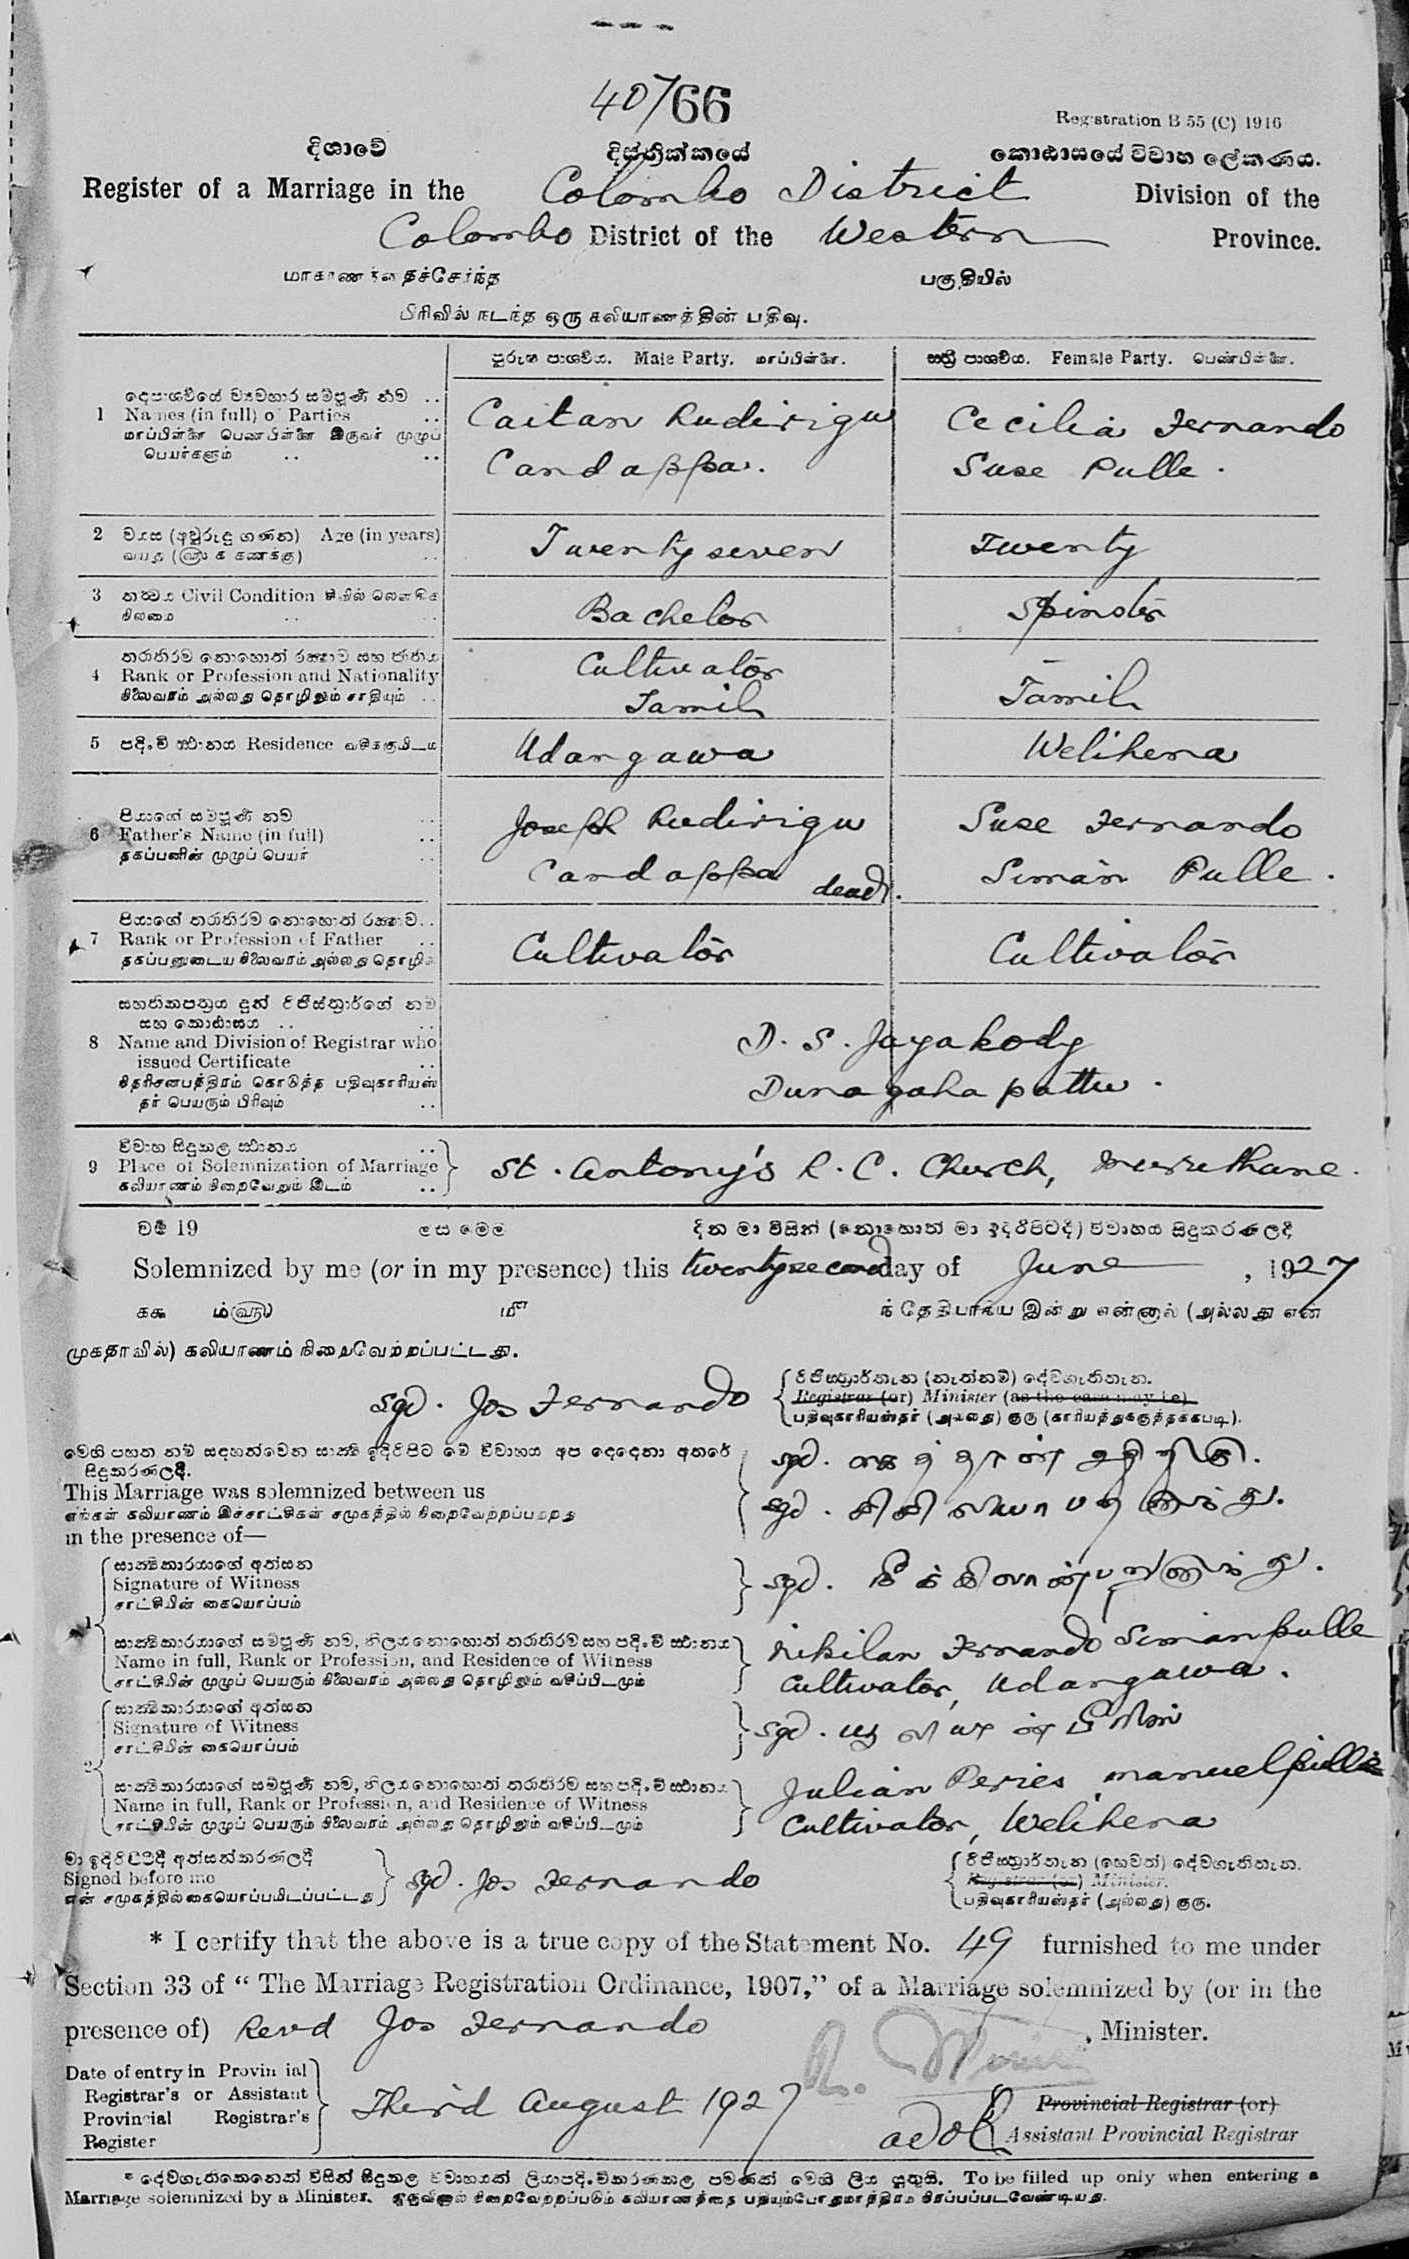 40/66
Registration B 55 (C) 1916
දිශාවේ දිස්ත්‍රික්කයේ කොඨාසයේ විවාහ ලේකණය.
Register of a Marriage in the Colombo District Division of the
Colombo District of the Western Province.
மாகாணத்தைச்சேர்ந்த பகுதியில்
பிரிவில் நடந்த ஒரு கலியாணத்தின் பதிவு.
පුරුෂ පාශවීය. Male Party. மாப்பிள்ளை. ස්ත්‍රී පාශවීය. Female Party. பெண்பிள்ளை.
දෙපාශවීයේ ව්‍යවහාර සම්පූර්ණ නම් ..
1 Names (in full) of Parties ..
மாப்பிள்ளை பெண்பிள்ளை இருவர் முழுப்
பெயர்களும் .. ..
Caitan Rudirigu Cecilia Fernando
Candappa. Suse Pulle.
2 වයස (අවුරුදු ගණන) Age (in years) Twenty seven Twenty
வயது (வருஷ கணக்கு) ..
3 තත්වය Civil Condition சிவில் லௌகீக Bachelor Spinster
நிலைமை ..
තරාතිරම නොහොත් රක්ෂාව සහ ජාතිය Cultivator –
4 Rank or Profession and Nationality Tamil Tamil
நிலைவரம் அல்லது தொழிலும் சாதியும் ..
5 පදිංචි ස්ථානය Residence வசிக்குமிடம் Udangawa Welihena
පියාගේ සම්පූර්ණ නම ..
6 Father's Name (in full) .. Joseph Rudirigu Suse Fernando
தகப்பனின் முழுப் பெயர் .. Candappa dead. Siman Pulle.
පියාගේ තරාතිරම නොහොත් රක්ෂාව ..
7 Rank or Profession of Father .. Cultivator Cultivator
தகப்பனுடைய நிலைவரம் அல்லது தொழில்
සහතිකපත්‍රය දුන් රෙජිස්ත්‍රාර්ගේ නම
සහ කොඨාසය .. ..
8 Name and Division of Registrar who D. S. Jayakody
issued Certificate .. Dunagaha pattu.
அத்தாட்சிப்பத்திரம் கொடுத்த பதிவுகாரியஸ்
தர் பெயரும் பிரிவும் ..
විවාහ සිදුකල ස්ථානය ..
9 Place of Solemnization of Marriage St. Antony's R. C. Church, Murruthane.
கலியாணம் நிறைவேறும் இடம் ..
වර්ෂ 19 ලස මෙම දින මා විසින් (නොහොත් මා ඉදිරිපිටදී) විවාහය සිදුකරණලදී
Solemnized by me (or in my presence) this twentysecond day of June, 1927
ந் தேதியாகிய இன்று என்னால் (அல்லது என்
முகதாவில்) கலியாணம் நிறைவேற்றப்பட்டது.
sgd. Jos Fernando
රෙජිස්ත්‍රාර්තැන (නැත්නම්) දේවගැතිතැන.
Registrar (or) Minister (as the case may be)
பதிவுகாரியஸ்தர் (அல்லது) குரு (காரியத்துக்குத்தக்கபடி).
මෙහි පහත නම් සඳහන්වෙන සාක්ෂි ඉදිරිපිට මේ විවාහය අප දෙදෙනා අතරේ
සිදුකරණලදී.
This Marriage was solemnized between us
எங்கள் கலியாணம் இச்சாட்சிகள் சமுகத்தில் நிறைவேற்றப்பட்டது
in the presence of—
sgd.
sgd.
සාක්ෂිකාරයාගේ අත්සන
Signature of Witness sgd.
சாட்சியின் கையொப்பம்
1
සාක්ෂිකාරයාගේ සම්පූර්ණ නම, නිලය නොහොත් තරාතිරම සහ පදිංචි ස්ථානය
Name in full, Rank or Profession, and Residence of Witness
சாட்சியின் முழுப் பெயரும் நிலைவரம் அல்லது தொழிலும் வசிப்பிடமும்
Fernando Simanpulle
Cultivator, Udangawa.
සාක්ෂිකාරයාගේ අත්සන
Signature of Witness sgd.
சாட்சியின் கையொப்பம்
2
සාක්ෂිකාරයාගේ සම්පූර්ණ නම, නිලය නොහොත් තරාතිරම සහ පදිංචි ස්ථානය
Name in full, Rank or Profession, and Residence of Witness
சாட்சியின் முழுப் பெயரும் நிலைவரம் அல்லது தொழிலும் வசிப்பிடமும்
Julian Peries, manuelpulle
Cultivator, Welihena
මා ඉදිරිපිටදී අත්සන්කරණලදී
Signed before me sgd. Jos Fernando
என் சமுகத்தில் கையொப்பமிடப்பட்டது
රෙජිස්ත්‍රාර්තැන (හෙවත්) දේවගැතිතැන.
Registrar (or) Minister.
பதிவுகாரியஸ்தர் (அல்லது) குரு.
* I certify that the above is a true copy of the Statement No. 49 furnished to me under
Section 33 of “ The Marriage Registration Ordinance, 1907,” of a Marriage solemnized by (or in the
presence of) Revd Jos Fernando, Minister.
Date of entry in Provincial
Registrar's or Assistant
Provincial Registrar's
Register
Third August 1927
Provincial Registrar (or)
Assistant Provincial Registrar
* දේවගැතිකෙනෙක් විසින් සිදුකල විවාහයක් ලියාපදිංචිකරණකල පමණක් මෙහි ලිය යුතුයි. To be filled up only when entering a
Marriage solemnized by a Minister. குருவினால் நிறைவேற்றப்படும் கலியாணத்தை பதியும்போதுமாத்திரம் நிரப்பப்படவேண்டியது.